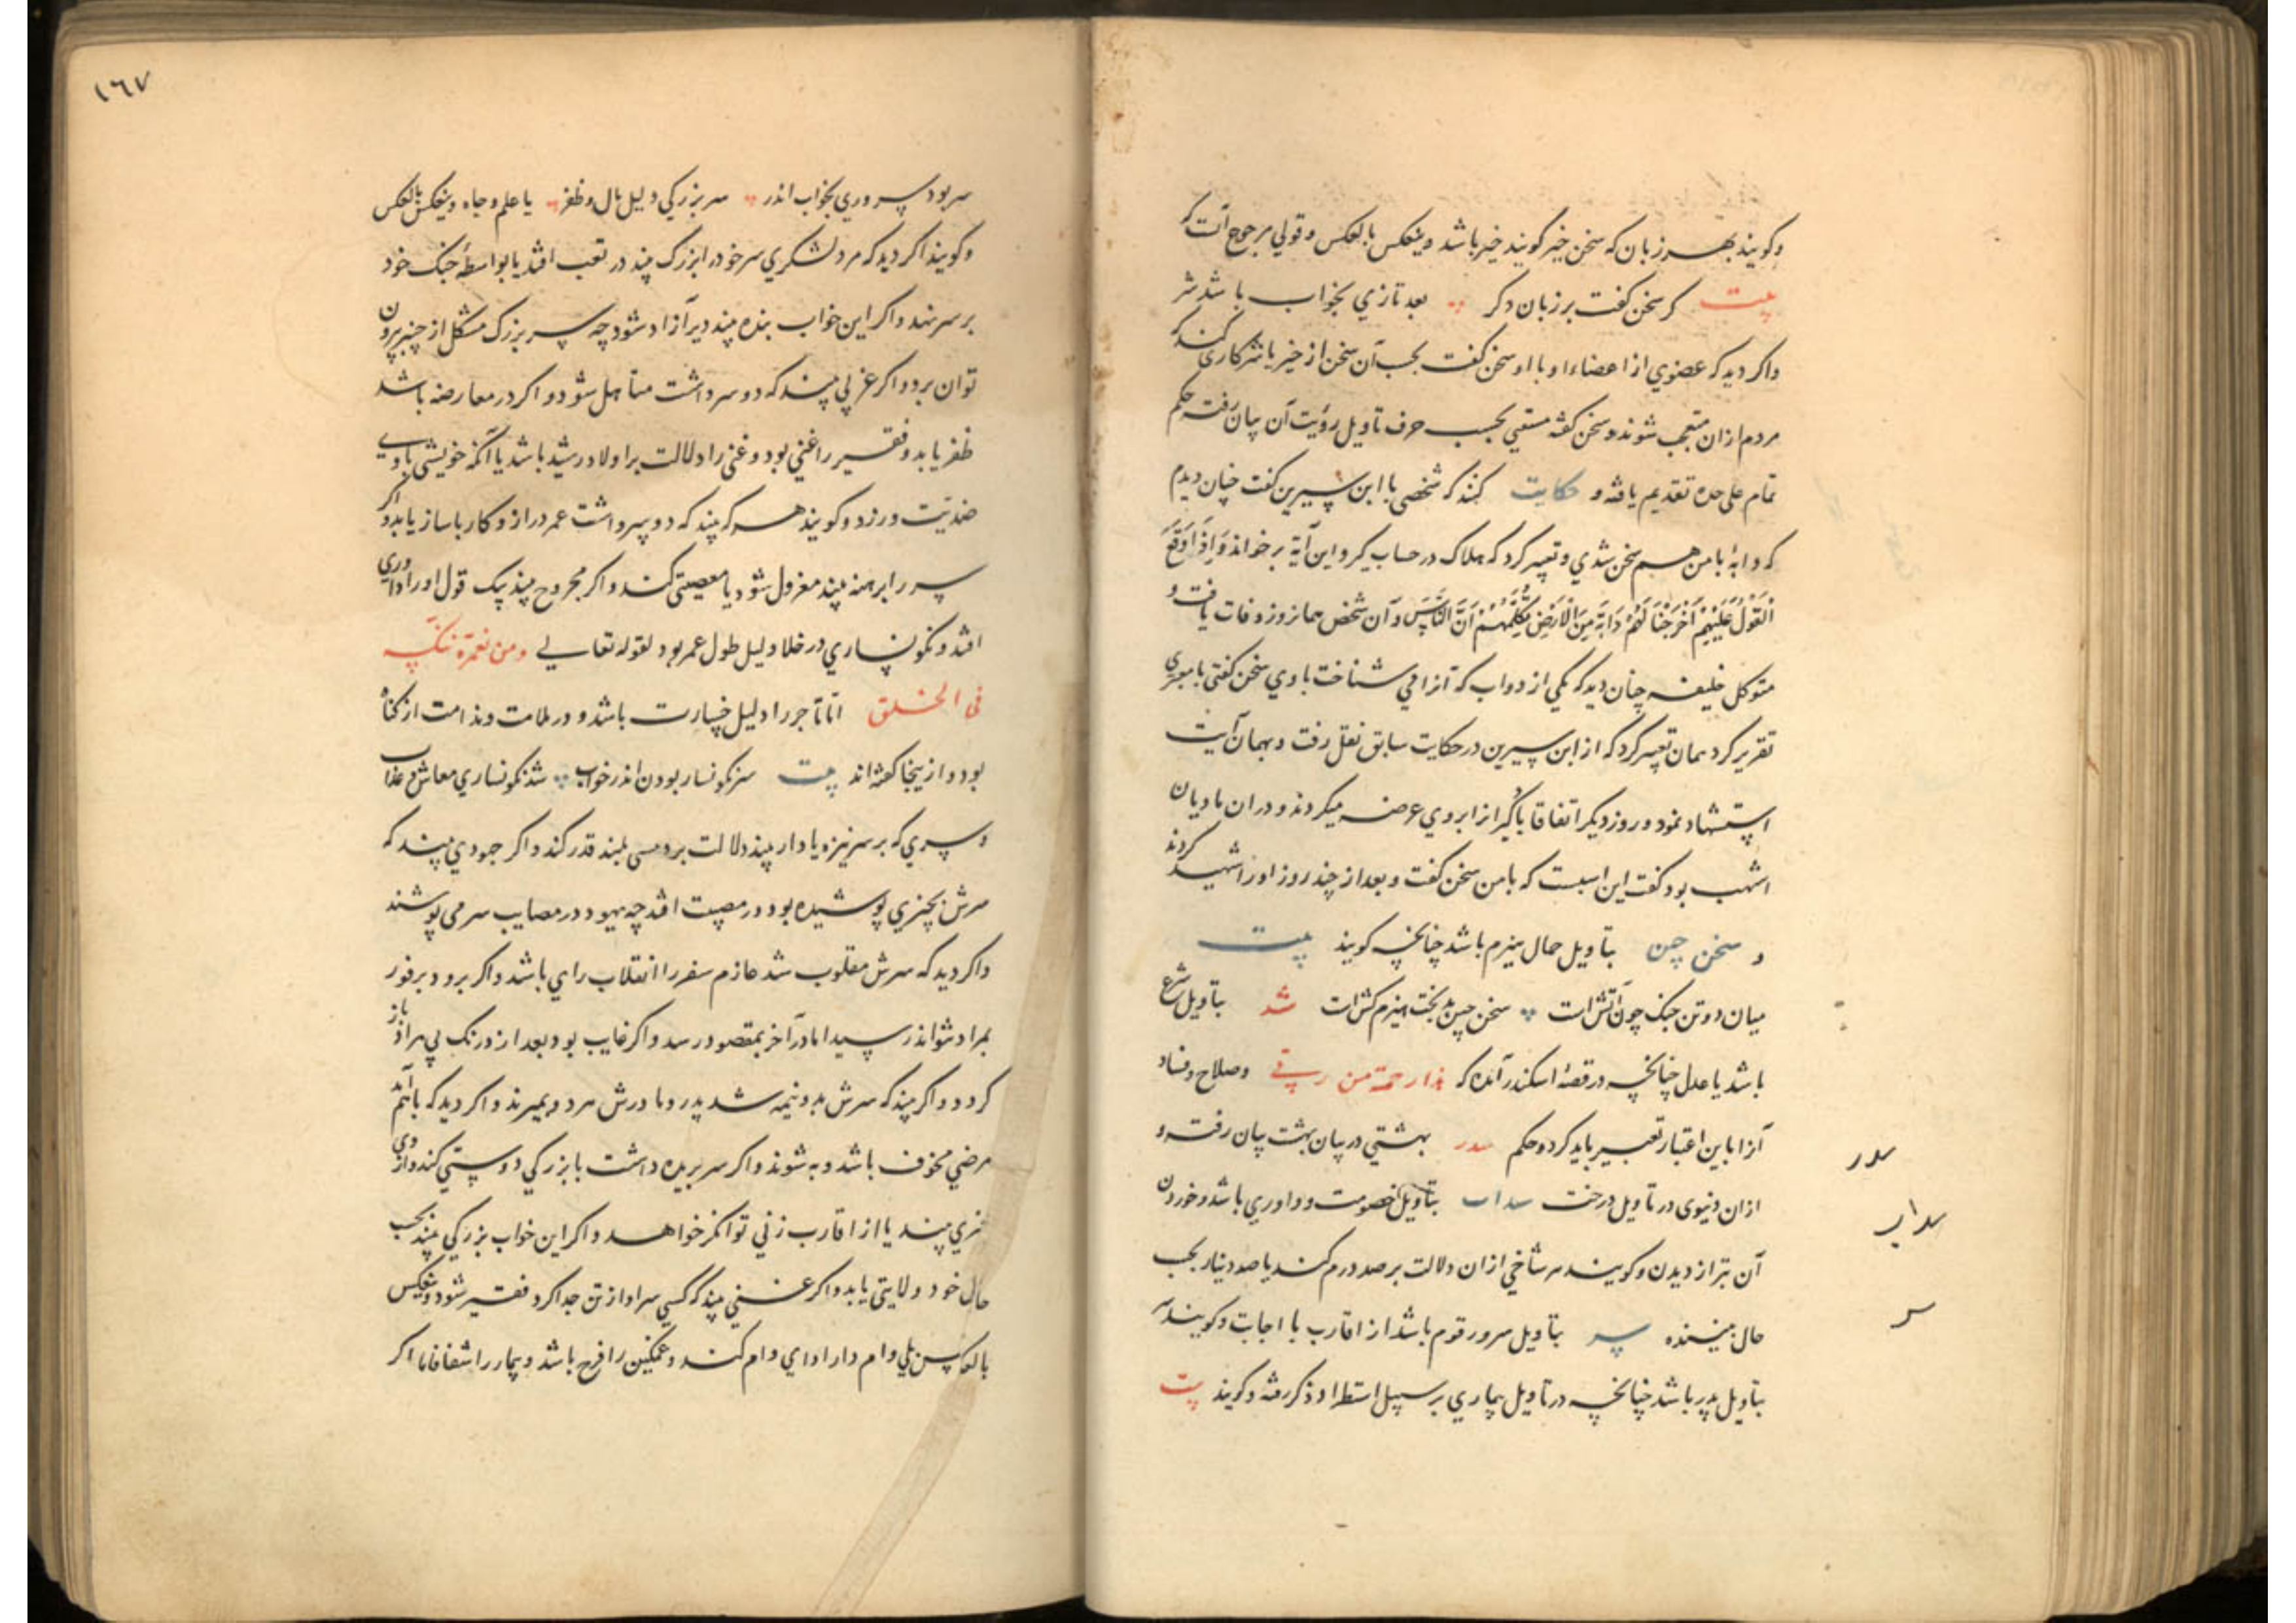 وکویند بهر زبان که سخن خیر کویند خیر باشد وینعکس بالعکس وقولی مرجوح آنست که
بیت کر سخن کفت بر زبان دکر بعد تازی بخواب باشد شر
واکر دید که عضوی از اعضاء او با او سخن کفت بحسب آن سخن از خیر یا شر کاری کند که
مردم ازان متعجب شوند وسخن کفتن مستقی بحسب حرف تأویل رؤیت آن بیان رفت حکم
تمام علی حده تقدیم یافته و حکایت کنند که شخصی با ابن سیرین کفت چنان دیدم
که دابهٔ با من هم سخن شدی وتعبیر کرد که هلاک در حساب کیر واین آیة برخواند وَإِذَا وَقَعَ
الْقَوْلُ عَلَيْهِمْ أَخْرَجْنَا لَهُمْ دَابَّةً مِنَ الْأَرْضِ تُكَلِّمُهُمْ أَنَّ النَّاسَ وآن شخص همانروز وفات یافت و
متوکل خلیفه چنان دید که یکی از دواب که آنرا می شناخت با وی سخن کفتی با معبری
تقریر کرد همان تعبیر کرد که از ابن سیرین در حکایت سابق نقل رفت وبهمان آیت
استشهاد نمود وروز دیکر اتفاقا بارکیرانرا بروی عرضه میکردند ودران مادیان
اشهب بود کفت این اسبست که با من سخن کفت وبعد از چند روز اورا شهید کردند
و سخن چین بتأویل حمال هیزم باشد چنانچه کویند بیت
میان دو تن جنک چون آتش است سخن چین بدبخت هیزم کش است سد بتأویل شرع
باشد یا عدل چنانچه در قصهٔ اسکندر آمده که هذا رحمة من ربی وصلاح وفساد
آنرا باین اعتبار تعبیر باید کرد وحکم سدر بهشتی در بیان بهشت بیان رفت و
ازان دنیوی در تأویل درخت سداب بتأویل خصومت وداوری باشد وخوردن
آن بتر از دیدن وکویند هر شاخی ازان دلالت بر صد درم کند یا صد دینار بحسب
حال بیننده سر بتأویل سرور قوم باشد از اقارب یا اجانب وکویند
بتأویل پدر باشد چنانچه در تأویل بیماری بر سبیل استطراد ذکر رفته وکویند بیت
سدر
سداب
سر
١٦٧
سر بود سروری بخواب اندر سر بزرکی دلیل مال وظفر یا علم وجاه وینعکس بالعکس
وکویند اکر دید که مرد لشکری سر خود را بزرک بیند در تعب افتد یا بواسطهٔ جنک خود
بر سر نهد واکر این خواب بنده بیند دیر آزاد شود چه سر بزرک مشکل از چنبر بیرون
توان برد واکر عزبی بیند که دو سر داشت متأهل شود واکر در معارضه باشد
ظفر یابد وفقیر را غنی بود وغنی را دلالت بر اولاد رشید باشد یا آنکه خویشی با وی
ضدیت ورزد وکویند هر که بیند که دو سر داشت عمر دراز وکار با ساز یابد واکر
سر را برهنه بیند معزول شود یا معصیتی کند واکر مجروح بیند بیک قول اورا داوری
افتد ونکونساری در خلا دلیل طول عمر بود لقوله تعالی ومن نعمره ننکسه
فی الخلق اما تاجر را دلیل خسارت باشد ودر ملامت وندامت از کناه
بود واز ینجا کفته اند بیت سر نکونسار بودن اندر خواب شد نکونساری معاش وعذاب
وسری که بر سر نیزه یا دار بیند دلالت بر رئیسی بلند قدر کند واکر جهودی بیند که
سرش بچیزی پوشیده بود در مصیبت افتد چه یهود در مصایب سر می پوشند
واکر دید که سرش مقلوب شد عازم سفر را انقلاب رای باشد واکر برود بر فور
بمراد نتواند رسید اما در آخر بمقصود رسد واکر غایب بود بعد از درنک بی مراد باز
کردد واکر بیند که سرش بدو نیمه شد پدر ومادرش هر دو بمیرند واکر دید که با الم
مرضی مخوف باشد وبه شوند واکر سر بریده داشت با بزرکی دوستی کند واز وی
خیری بیند یا از اقارب زنی توانکر خواهد واکر این خواب بزرکی بیند بحسب
حال خود ولایتی یابد واکر غنی بیند که کسی سر او از تن جدا کرد فقیر شود وینعکس
بالعکس بلی وام دار ادای وام کند وغمکین را فرح باشد وبیمار را شفا فاما اکر